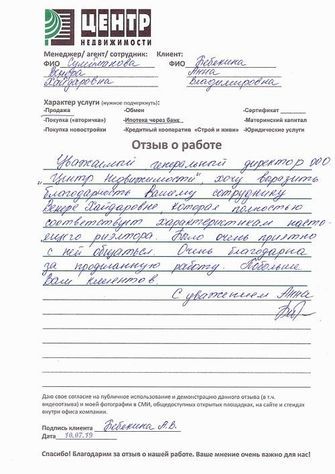 ЦЕНТР
НЕДВИЖИМОСТИ
Менеджер/ агент/ сотрудник: Клиент:
ФИО ФИО Бебекина
Венера Анна
Хайдаровна Владимировна
Характер услуги (нужное подчеркнуть):
-Продажа -Обмен -Сертификат
-Покупка («вторичка») -Ипотека через банк -Материнский капитал
-Покупка новостройки -Кредитный кооператив «Строй и живи» -Юридические услуги
Отзыв о работе
Уважаемый генеральный директор ООО
"Центр Недвижимости", хочу выразить
благодарность Вашему сотруднику
Венере Хайдаровне которая полностью
соответствует характеристикам насто-
ящего риэлтора. Было очень приятно
с ней общаться. Очень благодарна
за проделанную работу. Побольше
Вам клиентов.
С уважением Анна
Даю свое согласие на публичное использование и демонстрацию данного отзыва (в т.ч.
видеоотзыва) и моей фотографии в СМИ, общедоступных открытых площадках, на сайте и стендах
внутри офиса компании.
Подпись клиента Бебекина А.В.
Дата 10.07.19
Спасибо! Благодарим за отзыв о нашей работе. Ваше мнение очень важно для нас!